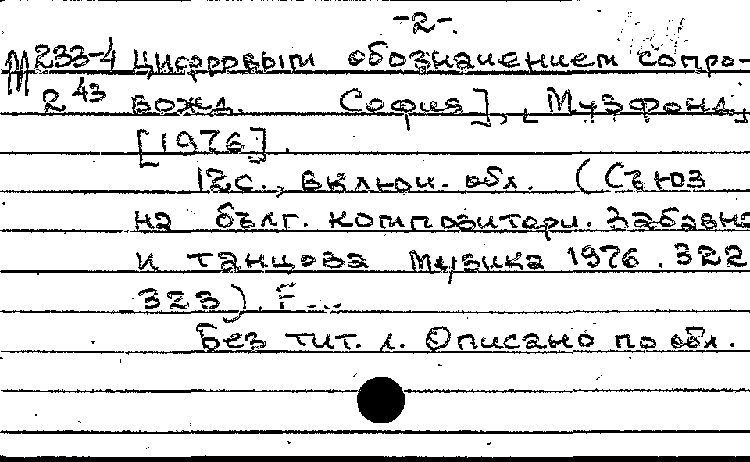 -2-.
М 233-4 Цифровым обозначением сопро-
2 43 вожд. София], [Музфонд]
[1976].
12с., включ. обл. (Съюз
на бълг. композитори. Забавна
и танцова музика 1976. 322
323). F...
Без тит. л. Описано по обл.